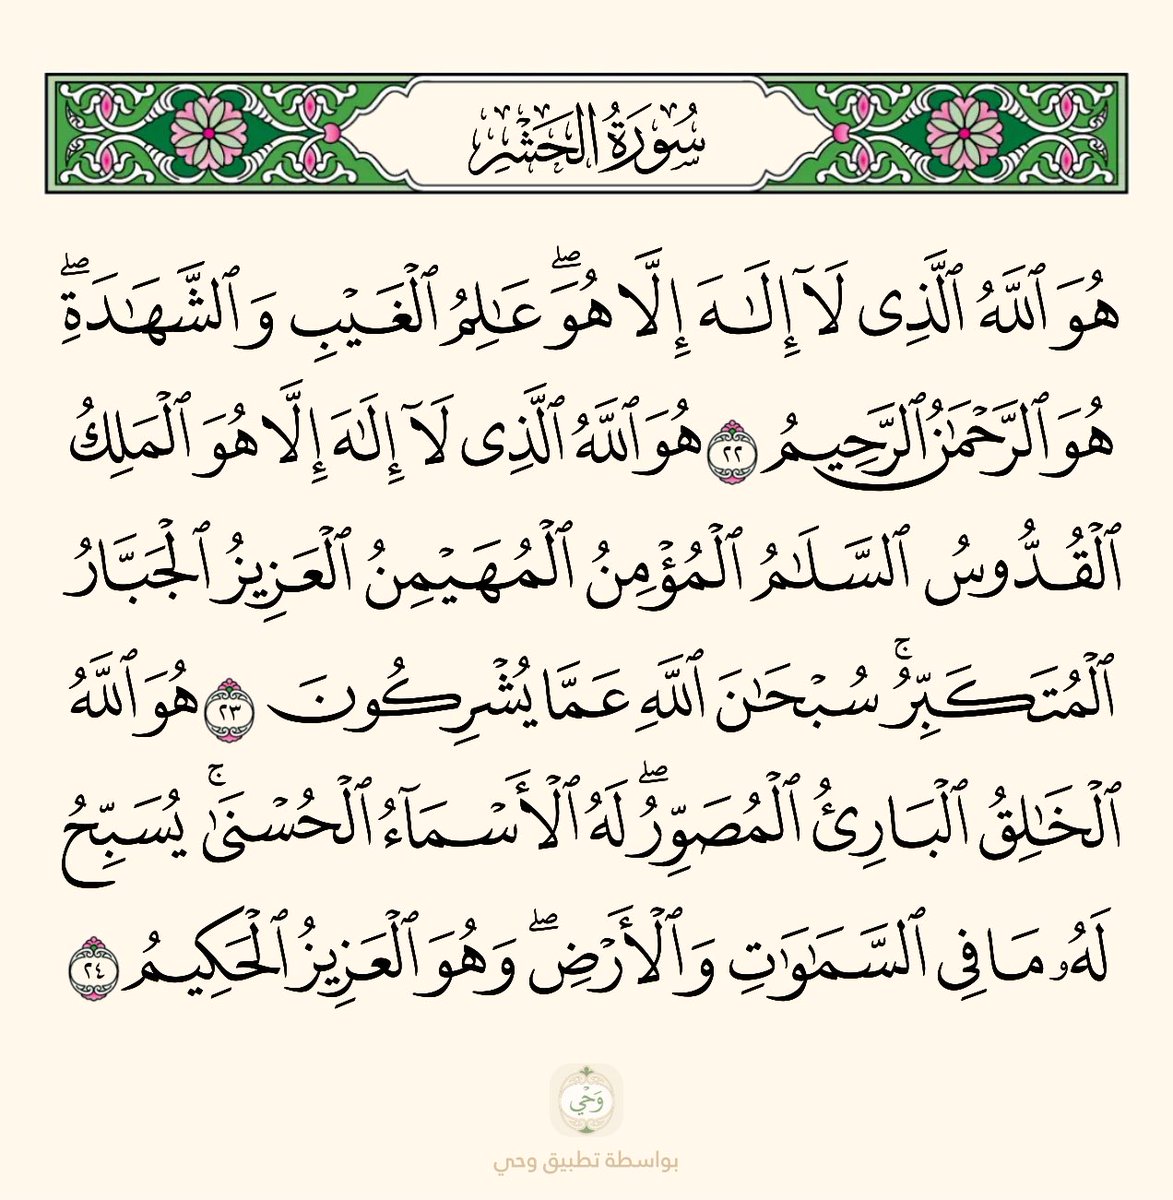 سُورَةُ الحَشْرِ
هُوَ ٱللَّهُ ٱلَّذِى لَآ إِلَـٰهَ إِلَّا هُوَ ۖ عَـٰلِمُ ٱلْغَيْبِ وَٱلشَّهَـٰدَةِ ۖ
هُوَ ٱلرَّحْمَـٰنُ ٱلرَّحِيمُ ٢٢ هُوَ ٱللَّهُ ٱلَّذِى لَآ إِلَـٰهَ إِلَّا هُوَ ٱلْمَلِكُ
ٱلْقُدُّوسُ ٱلسَّلَـٰمُ ٱلْمُؤْمِنُ ٱلْمُهَيْمِنُ ٱلْعَزِيزُ ٱلْجَبَّارُ
ٱلْمُتَكَبِّرُ ۚ سُبْحَـٰنَ ٱللَّهِ عَمَّا يُشْرِكُونَ ٢٣ هُوَ ٱللَّهُ
ٱلْخَـٰلِقُ ٱلْبَارِئُ ٱلْمُصَوِّرُ ۖ لَهُ ٱلْأَسْمَآءُ ٱلْحُسْنَىٰ ۚ يُسَبِّحُ
لَهُۥ مَا فِى ٱلسَّمَـٰوَٰتِ وَٱلْأَرْضِ ۖ وَهُوَ ٱلْعَزِيزُ ٱلْحَكِيمُ ٢٤
وَحْي
بواسطة تطبيق وحي